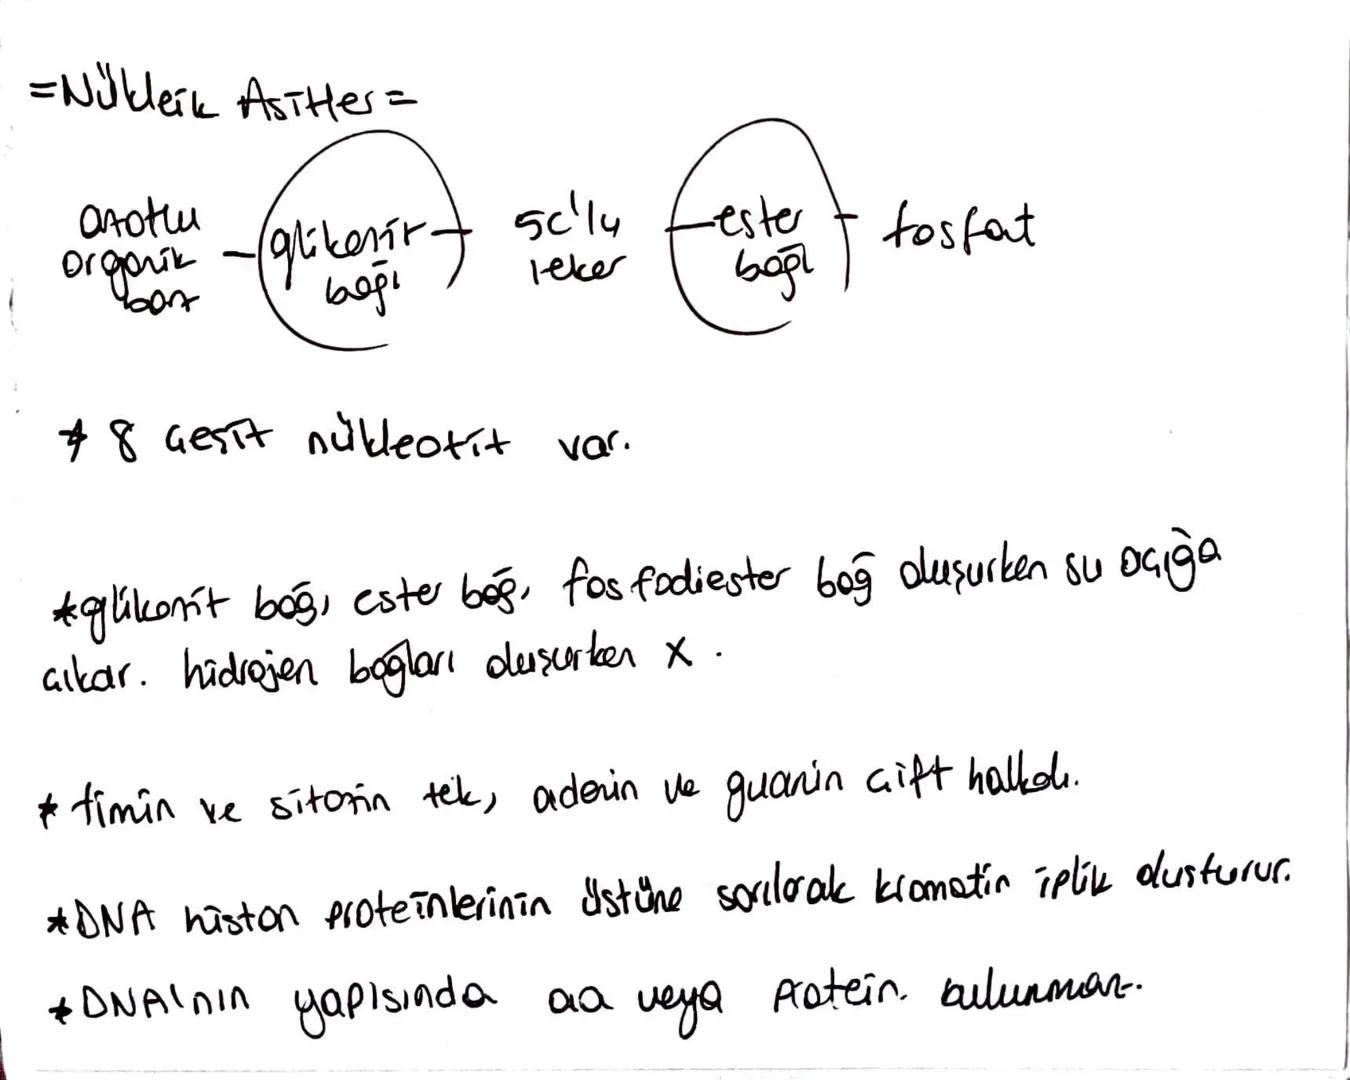 =Nükleik Asitler=
azotlu organik baz - glikozit bağı - 5c'lu şeker - ester bağı - fosfat
* 8 çeşit nükleotit var.
*glikozit bağı, ester bağı, fosfodiester bağ oluşurken su açığa
çıkar. hidrojen bağları oluşurken x.
* timin ve sitozin tek, adenin ve guanin çift halkalı.
*DNA histon proteinlerinin üstüne sarılarak kromatin iplik oluşturur.
*DNA'nın yapısında aa veya protein bulunmaz.